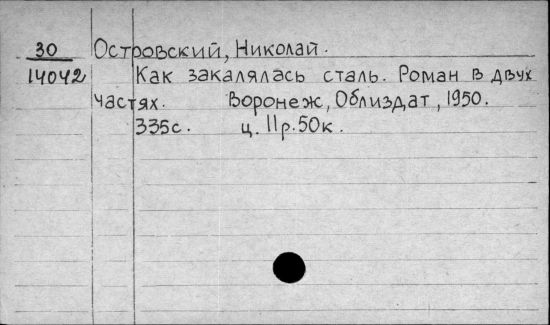 30 Островский, Николай.
14042 Как закалялась сталь. Роман в двух
частях. Воронеж, Облиздат, 1950.
335с. ц. 11р.50к.